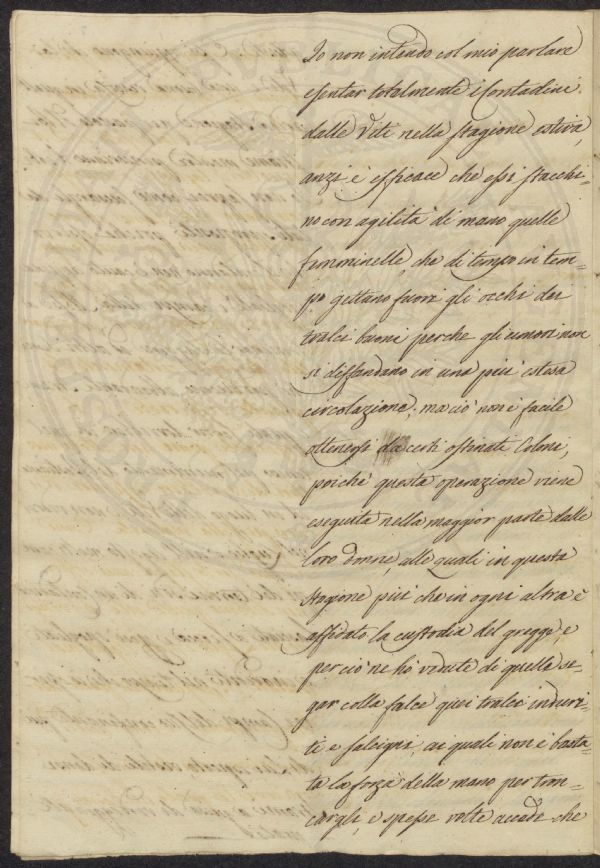 Io non intendo col mio parlare
esentar totalmente i Contadini
dalle Viti nella stagione estiva,
anzi è efficace che essi stacchi-
no con agilità di mano quelle
femminelle, che di tempo in tem-
po gettano fuori gli occhi dei
tralci buoni perche gli umori non
si diffondano in una più estesa
circolazione; ma ciò non è facile
ottenersi da certi ostinati Coloni,
poiché questa operazione viene
eseguita nella maggior parte dalle
loro donne, alle quali in questa
stagione più che in ogni altra è
affidato la custodia del gregge, e
perciò ne hò vedute di quelle se-
gar colla falce quei tralci induri-
ti e salcigni, ai quali non è basta-
ta la forza della mano per tron-
cargli, e spesse volte accade che